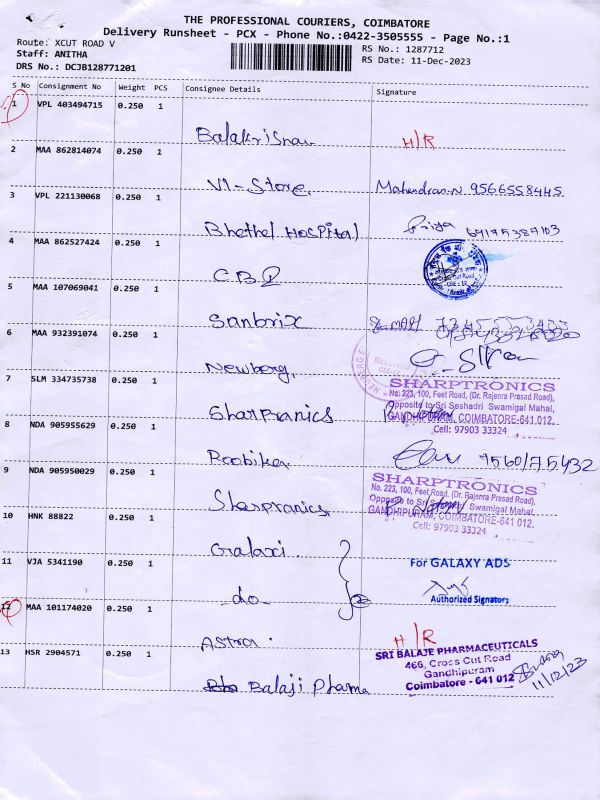 THE PROFESSIONAL COURIERS, COIMBATORE
Delivery Runsheet - PCX - Phone No.:0422-3505555 - Page No.:1
Route: XCUT ROAD V
RS No.: 1287712
Staff: ANITHA
RS Date: 11-Dec-2023
DRS No.: DCJB128771201
S No Consignment No Weight PCS Consignee Details Signature
1 VPL 403494715 0.250 1
Balakrisnan H/R
2 MAA 862814074 0.250 1
VI-Store Mahendran.N 9566558445
3 VPL 221130068 0.250 1
Bhethel Hospital Priya
4 MAA 862527424 0.250 1
C.B.I
5 MAA 107069041 0.250 1
Sanbrix
6 MAA 932391074 0.250 1
Newberg.
7 SLM 334735738 0.250 1
SHARPTRONICS
No. 223, 100, Feet Road, (Dr. Rajenra Prasad Road),
Opposite to Sri Seshadri Swamigal Mahal,
GANDHIPURAM, COIMBATORE-641 012.
Cell: 97903 33324
Sharpranics
8 NDA 905955629 0.250 1
9 NDA 905950029 0.250 1
SHARPTRONICS
No. 223, 100, Feet Road, (Dr. Rajenra Prasad Road),
Opposite to Sri Seshadri Swamigal Mahal,
GANDHIPURAM, COIMBATORE-641 012.
Cell: 97903 33324
Sharpranics
10 HNK 88822 0.250 1
Galaxi
11 VJA 5341190 0.250 1
For GALAXY ADS
Authorized Signatory
-do-
12 MAA 101174020 0.250 1
Astra. H/R
13 HSR 2904571 0.250 1
SRI BALAJE PHARMACEUTICALS
466, Cross Cut Road
Gandhipuram
Coimbatore - 641 012
11/12/23
Balaji Pharma